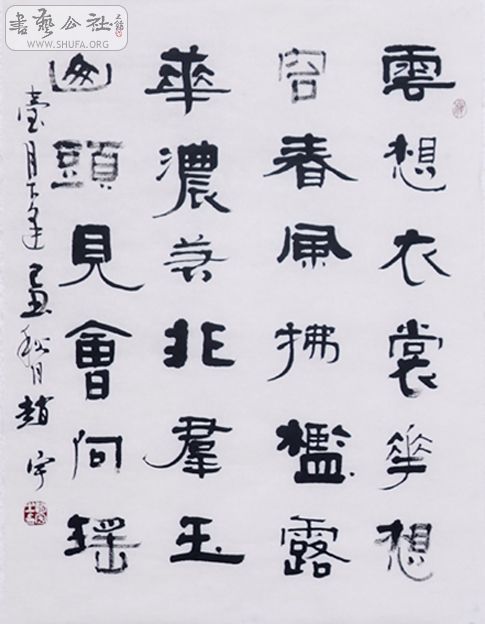 書藝公社
WWW.SHUFA.ORG
雲想衣裳花想
容春風拂檻露
華濃若非羣玉
山頭見會向瑤
臺月下逢己丑秋月趙宇